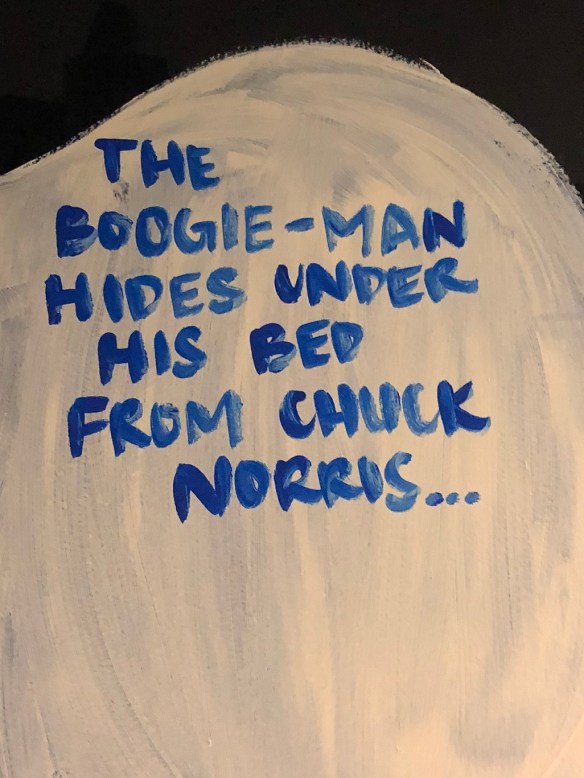 THE
BOOGIE-MAN
HIDES UNDER
HIS BED
FROM CHUCK
NORRIS...